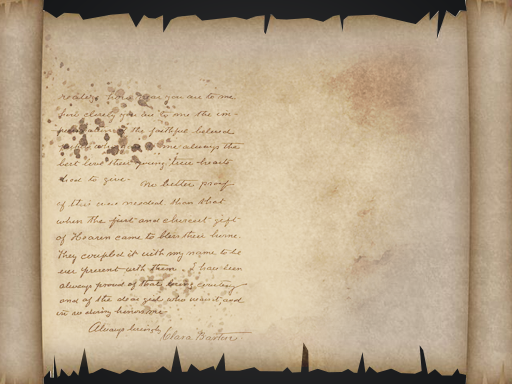 realize how dear you are to me
but clearly you are to me the im-
of the faithful beloved
me always the
best love that young true hearts
had to give. No better proof
of this was needed than that
when the first and dearest gift
of Heaven came to bless their home.
They coupled it with my name to be
ever present with them. I have been
always proud of that loving courtesy
and of the dear girl who wears it, and
in so doing honors me
Always lovingly
Clara Barton